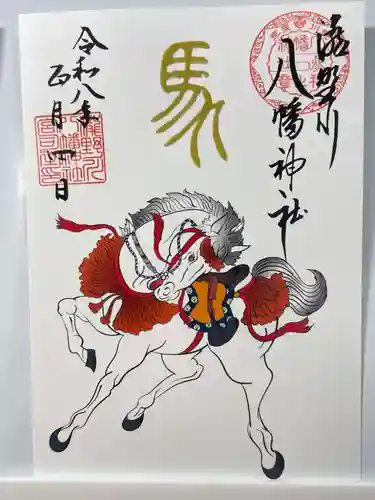 滝野川
八幡神社
馬
令和八年
正月四日